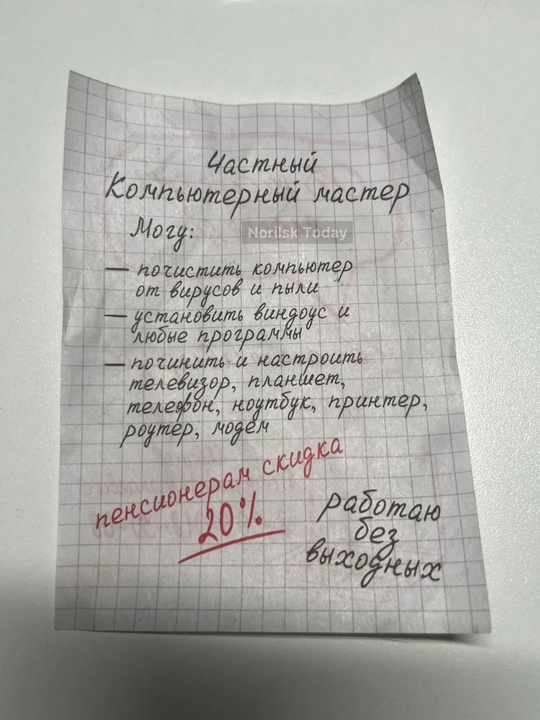 Частный
Компьютерный мастер
Могу:
Norilsk Today
— почистить компьютер
от вирусов и пыли
— установить виндоус и
любые программы
— починить и настроить
телевизор, планшет,
телефон, ноутбук, принтер,
роутер, модем
пенсионерам скидка
20%
работаю
без
выходных